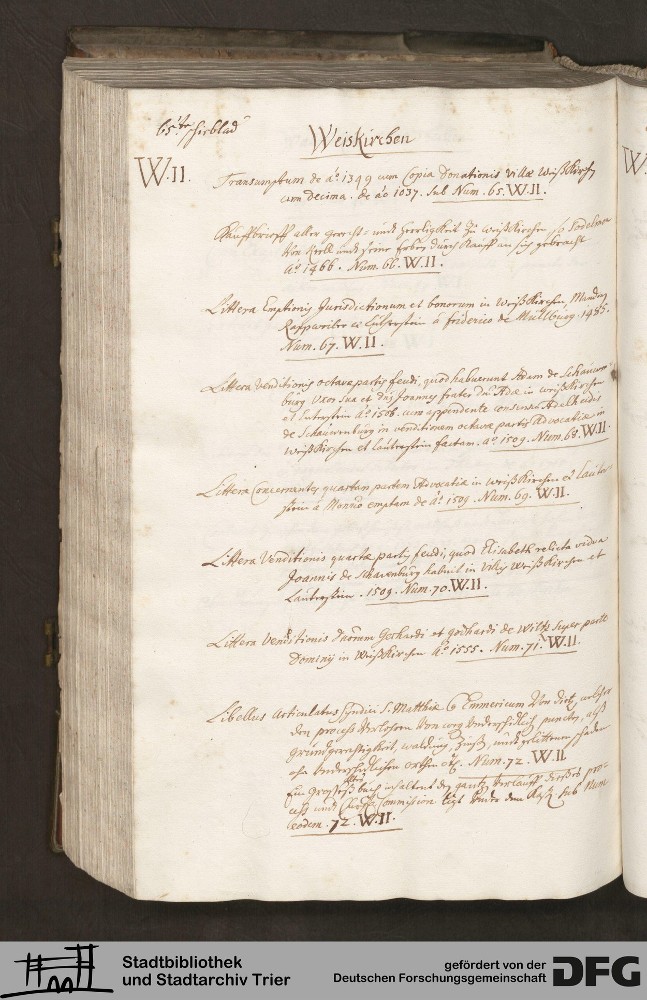 65te schieblad
Weiskirchen
W.II.
Transumptum de aō 1349 cum Copia Donationis villae Weißkirch,
cum decima. de aō 1037. sub Num. 65. W.II.
Kauffbrieff aller gerecht- und herrligkeit zu Weißkirchen so
von und seine erben durch Kauff an sich gebracht
Aō 1466. Num. 66. W.II.
Littera Emptionis Jurisdictionum et bonorum in Weißkirchen,
Rappweiler et à friderico de Millburg. 1485.
Num. 67. W.II.
Littera Venditionis octavae partis feudi, quod habuerunt Adam de Schauwen-
burg uxor sua et Joannes frater Adae in weißkirchen
et aō 1506. cum appendente consensu Adelheidis
de Schauwenburg in venditionem octavae partis Advocatiae in
weißkirchen et lauterstein factam. aō 1509. Num. 68. W.II.
Littera Concernentes quartam partem Advocatiae in Weißkirchen et lauter
stein à emptam de aō 1509. Num. 69. W.II.
Littera Venditionis quartae partis feudi, quod Elisabeth relicta vidua
Joannis de Schauenburg habuit in Weißkirchen et
Lauterstein. 1509. Num. 70. W.II.
Littera Venditionis Gerhardi et godhardi de Wiltz super parte
Dominij in Weißkirchen Aō 1555. Num. 71. W.II.
Libellus Articulatus Syndici S. Matthiae Emmericum von
den process verlohren von weg underschidlich puncten, alß
grundgerechtigkeit, zinß, und erlittenen schaden
ahn underschidlichen orthen etc. Num. 72. W.II
Ein großeß buch inhaltent den gantz verlauff dießes pro-
cess und Commission ligt under dem sub Num
eodem. 72. W.II.
W.
Stadtbibliothek
und Stadtarchiv Trier
gefördert von der
Deutschen Forschungsgemeinschaft
DFG